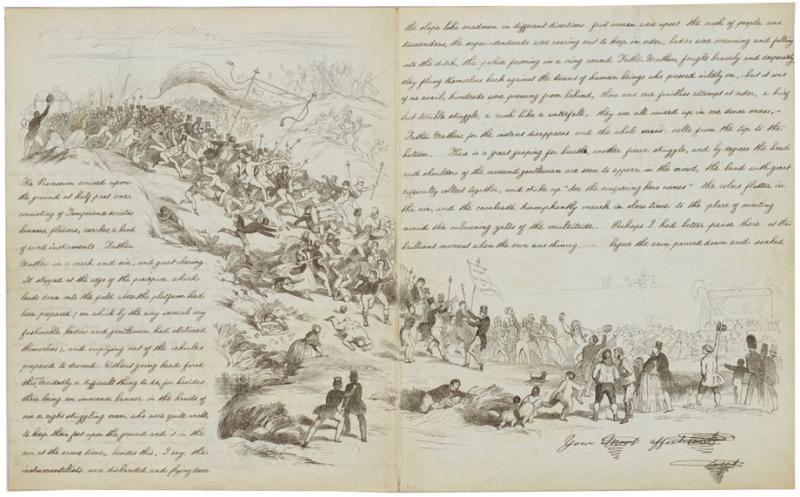 The Procession arrived upon
the ground at half past one
consisting of Temperance societies
banners, flowers, searches a band
of wind instruments Father
Mathew in a coach and six, and great cheering
It stopped at the edge of the precipice which
leads down into the field where the platform had
been prepared (on which by the way several very
fashionable ladies and gentlemen had stationed
themselves), and emptying out of the vehicles
prepared to descend. Without going head first
this decidedly a difficult thing to do, for besides
there being an immense banner in the hands of
six or eight struggling men, who were quite unable
to keep their feet upon the ground and it in the
air at the same time, besides this, I say, the
instrumentalists were disbanded and flying down
the slope like madmen in different directions. fruit women were upset, the rush of people was
tremendous, the superintendants were roaring out to keep in order, ladies were screaming and falling
into the ditch, the police forming in a ring around Father Mathew, fought bravely and desperately
they fling themselves back against the torrent of human beings who pressed wildly on, but it was
of no avail, hundreds were pressing from behind, there was one fruitless attempt at order, a brief
but terrible struggle, a rush like a waterfall, they are all mixed up in one dense mass, -
Father Mathew for the instant disappears and the whole mass rolls from the top to the
bottom. There is a great gasping for breath, another fierce struggle, and by degrees the head
and shoulders of the reverend gentleman are seen to appear in the crowd, the band with great
difficulty collect together, and strike up "See the conquering hero comes" the colors flutter in
the air, and the cavalcade triumphantly march in close time to the place of meeting
amid the enlivening yells of the multitude. Perhaps I had better pause there, at this
brilliant moment when the sun was shining, — before the rain poured down and soaked
Your affectionate